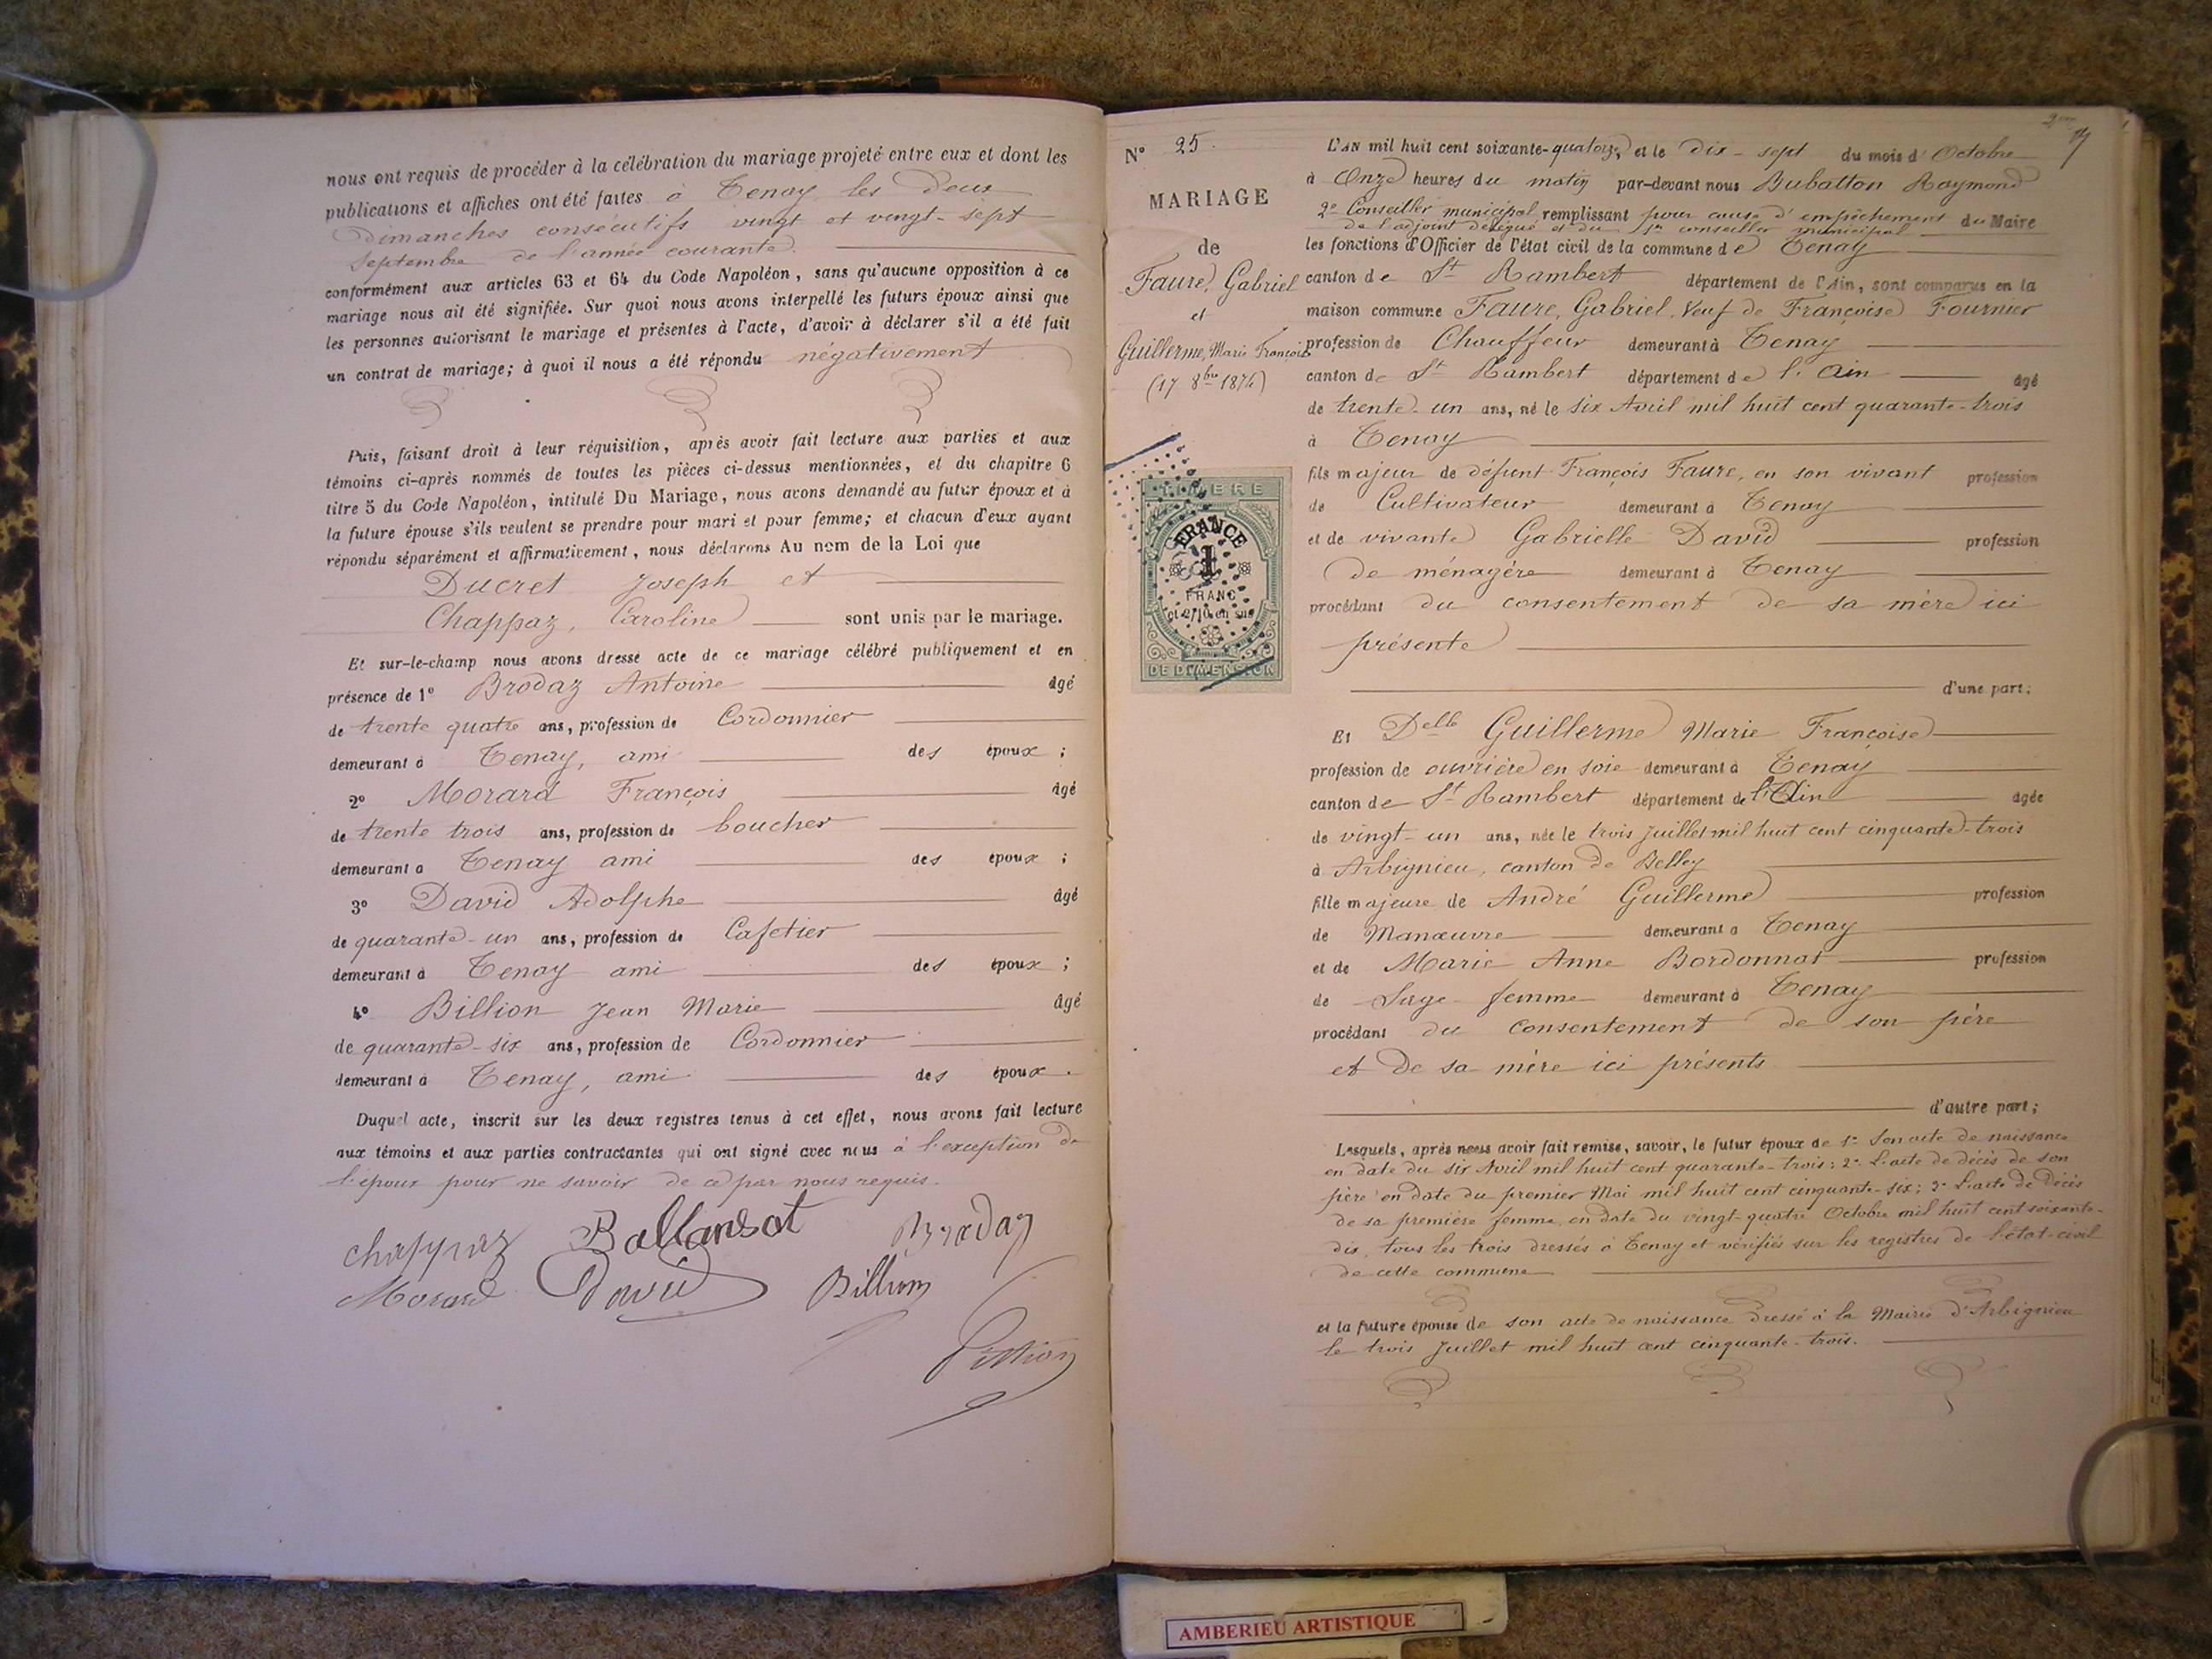 nous ont requis de procéder à la célébration du mariage projeté entre eux et dont les
publications et affiches ont été faites à Tenay les deux
dimanches consécutifs vingt et vingt-sept
septembre de l'année courante.
conformément aux articles 63 et 64 du Code Napoléon, sans qu'aucune opposition à ce
mariage nous ait été signifiée. Sur quoi nous avons interpellé les futurs époux ainsi que
les personnes autorisant le mariage et présentes à l'acte, d'avoir à déclarer s'il a été fait
un contrat de mariage; à quoi il nous a été répondu négativement
Puis, faisant droit à leur réquisition, après avoir fait lecture aux parties et aux
témoins ci-après nommés de toutes les pièces ci-dessus mentionnées, et du chapitre 6
titre 5 du Code Napoléon, intitulé Du Mariage, nous avons demandé au futur époux et à
la future épouse s'ils veulent se prendre pour mari et pour femme; et chacun d'eux ayant
répondu séparément et affirmativement, nous déclarons Au nom de la Loi que
Ducret Joseph et
Chappaz, Caroline sont unis par le mariage.
Et sur-le-champ nous avons dressé acte de ce mariage célébré publiquement et en
présence de 1° Brodaz Antoine âgé
de trente quatre ans, profession de Cordonnier
demeurant à Tenay, ami des époux;
2° Morard François âgé
de trente trois ans, profession de boucher
demeurant à Tenay ami des époux;
3° David Adolphe âgé
de quarante-un ans, profession de Cafetier
demeurant à Tenay ami des époux;
4° Billion Jean Marie âgé
de quarante-six ans, profession de Cordonnier
demeurant à Tenay, ami des époux.
Duquel acte, inscrit sur les deux registres tenus à cet effet, nous avons fait lecture
aux témoins et aux parties contractantes qui ont signé avec nous à l'exception de
l'époux pour ne savoir de ce par nous requis.
Chappaz Ballansat Brodaz
Morard David Billion
N° 25.
MARIAGE
de
Faure, Gabriel
et
Guillerme, Marie Françoise
(17 8bre 1874)
TIMBRE
FRANCE
1
FRANC
et 2/10 en sus
DE DIMENSION
L'AN mil huit cent soixante-quatorze, et le dix-sept du mois d'Octobre
à Onze heures du matin par-devant nous Bubatton Raymond
2e Conseiller municipal remplissant pour cause d'empêchement du Maire
de l'adjoint délégué et du 1er conseiller municipal
les fonctions d'Officier de l'état civil de la commune de Tenay
canton de St Rambert département de l'Ain, sont comparus en la
maison commune Faure, Gabriel, Veuf de Françoise Fournier
profession de Chauffeur demeurant à Tenay
canton de St Rambert département de l'Ain âgé
de trente-un ans, né le six Avril mil huit cent quarante-trois
à Tenay
fils majeur de défunt François Faure, en son vivant profession
de Cultivateur demeurant à Tenay
et de vivante Gabrielle David profession
de ménagère demeurant à Tenay
procédant du consentement de sa mère ici
présente
d'une part;
Et Delle Guillerme Marie Françoise
profession de ouvrière en soie demeurant à Tenay
canton de St Rambert département de l'Ain âgée
de vingt-un ans, née le trois Juillet mil huit cent cinquante-trois
à Arbignieu, canton de Belley
fille majeure de André Guillerme profession
de Manœuvre demeurant à Tenay
et de Marie Anne Bordonnat profession
de Sage-femme demeurant à Tenay
procédant du consentement de son père
et de sa mère ici présents
d'autre part;
Lesquels, après nous avoir fait remise, savoir, le futur époux de 1° Son acte de naissance
en date du six Avril mil huit cent quarante-trois; 2° L'acte de décès de son
père en date du premier Mai mil huit cent cinquante-six; 3° L'acte de décès
de sa première femme, en date du vingt-quatre Octobre mil huit cent soixante-
dix, tous les trois dressés à Tenay et vérifiés sur les registres de l'état-civil
de cette commune
et la future épouse de son acte de naissance dressé à la Mairie d'Arbignieu
le trois Juillet mil huit cent cinquante-trois.
AMBERIEU ARTISTIQUE